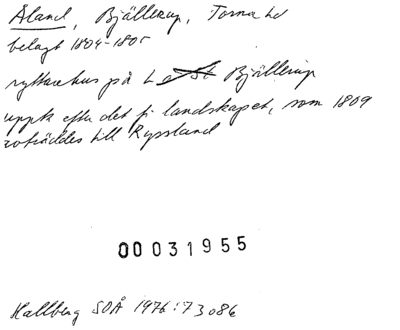 Åland, Bjällerup, Torna hd
belagt 1804-1805
ryttarehus på L a St Bjällerup
uppk efter det fi landskapet, som 1809
avträddes till Ryssland
00031955
Hallberg SOÅ 1976:73 086